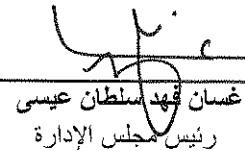 غسان فهد سلطان عيسى
رئيس مجلس الإدارة